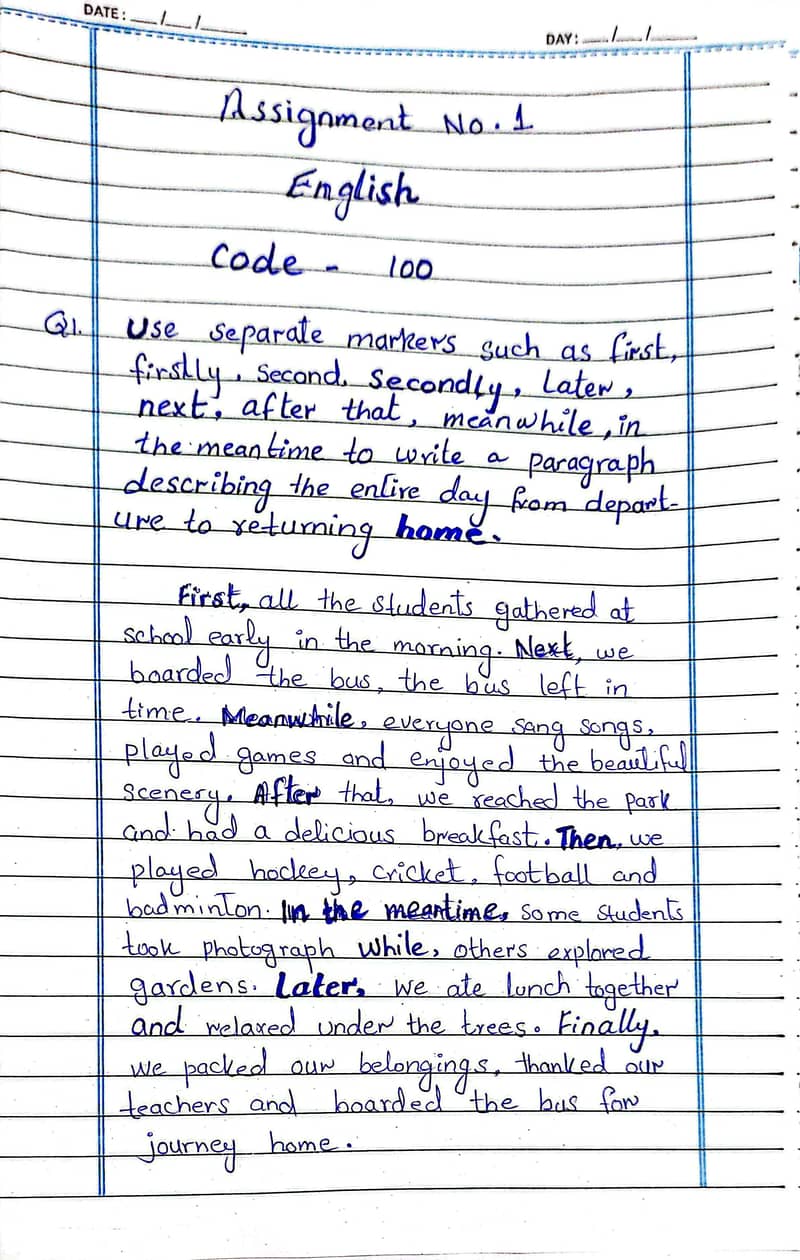 DATE: __/__/____
DAY: __/__/____
Assignment No. 1
English
Code - 100
Q1. Use separate markers such as first,
firstly, second, secondly, later,
next, after that, meanwhile, in
the meantime to write a paragraph
describing the entire day from depart-
ure to returning home.
First, all the students gathered at
school early in the morning. Next, we
boarded the bus, the bus left in
time. Meanwhile, everyone sang songs,
played games and enjoyed the beautiful
scenery. After that, we reached the park
and had a delicious breakfast. Then, we
played hockey, cricket, football and
badminton. In the meantime, some students
took photograph while, others explored
gardens. Later, we ate lunch together
and relaxed under the trees. Finally,
we packed our belongings, thanked our
teachers and boarded the bus for
journey home.